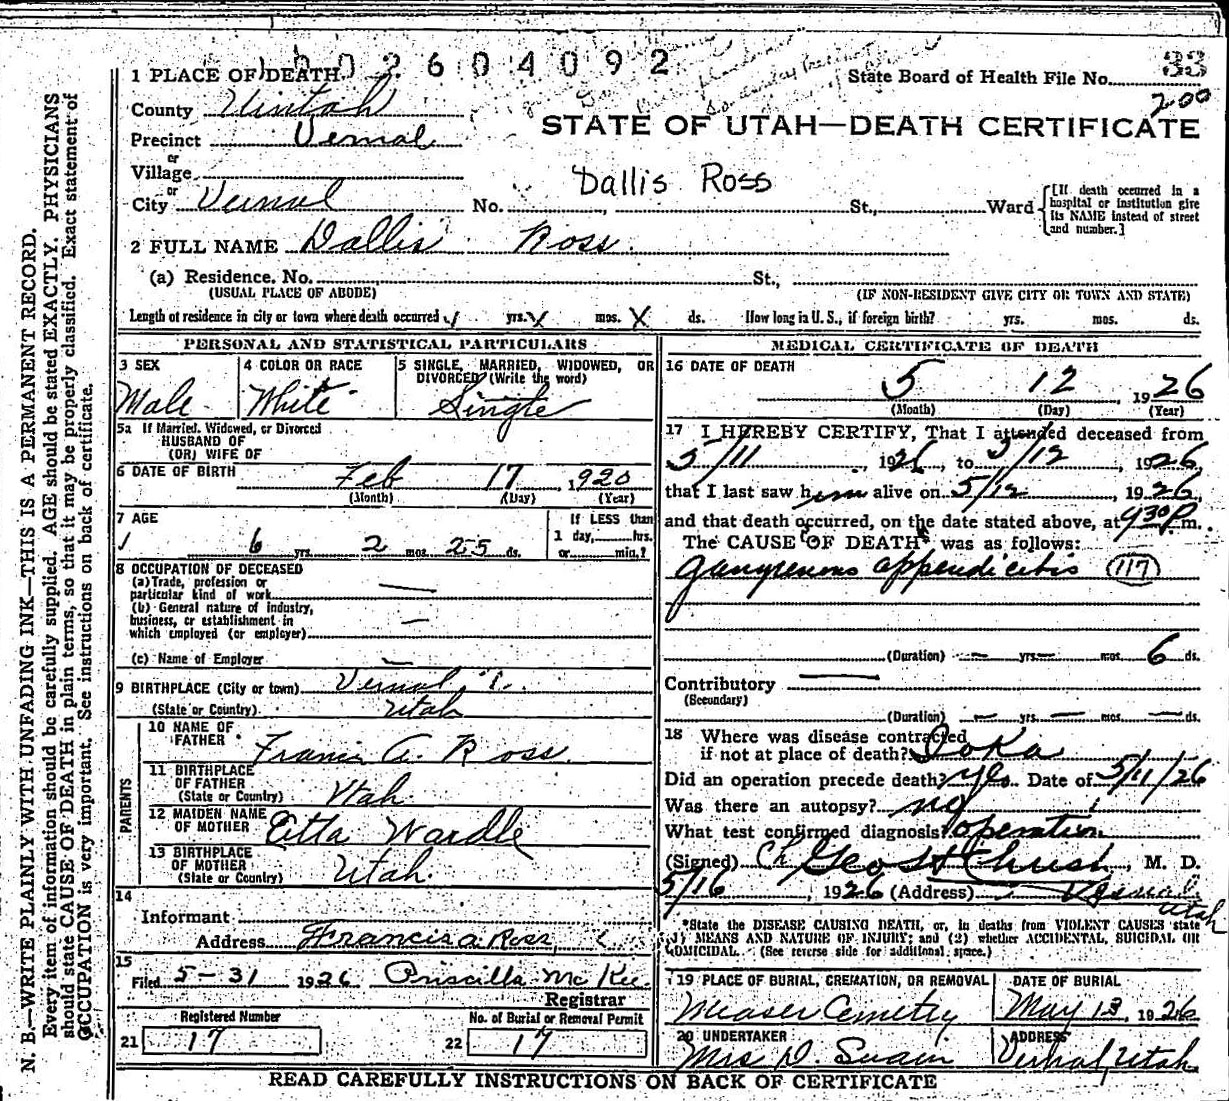 1 PLACE OF DEATH 002604092
State Board of Health File No. 33
200
County Uintah
STATE OF UTAH—DEATH CERTIFICATE
Precinct Vernal
or
Village
Dallis Ross
or
City Vernal No. St., Ward [If death occurred in a hospital or institution give its NAME instead of street and number.]
2 FULL NAME Dallis Ross
(a) Residence. No. St.,
(USUAL PLACE OF ABODE) (IF NON-RESIDENT GIVE CITY OR TOWN AND STATE)
Length of residence in city or town where death occurred yrs. X mos. X ds. How long in U. S., if foreign birth? yrs. mos. ds.
PERSONAL AND STATISTICAL PARTICULARS
3 SEX Male
4 COLOR OR RACE White
5 SINGLE, MARRIED, WIDOWED, OR DIVORCED (Write the word) Single
5a If Married, Widowed, or Divorced
HUSBAND OF
(OR) WIFE OF
6 DATE OF BIRTH Feb 17, 1920
(Month) (Day) (Year)
7 AGE
6 yrs. 2 mos. 25 ds.
If LESS than
1 day, hrs.
or min.?
8 OCCUPATION OF DECEASED
(a) Trade, profession or
particular kind of work —
(b) General nature of industry,
business, or establishment in
which employed (or employer) —
(c) Name of Employer —
9 BIRTHPLACE (City or town) Vernal
(State or Country) Utah
PARENTS
10 NAME OF FATHER Francis A. Ross
11 BIRTHPLACE OF FATHER (State or Country) Utah
12 MAIDEN NAME OF MOTHER Etta Wardle
13 BIRTHPLACE OF MOTHER (State or Country) Utah
14
Informant
Address Francis A. Ross
15
Filed 5-31 1926 Priscilla McKee
Registrar
Registered Number No. of Burial or Removal Permit
21 17 22 17
MEDICAL CERTIFICATE OF DEATH
16 DATE OF DEATH 5 12, 1926
(Month) (Day) (Year)
17 I HEREBY CERTIFY, That I attended deceased from
5/11, 1926, to 5/12 1926,
that I last saw him alive on 5/12, 1926,
and that death occurred, on the date stated above, at 430P m.
The CAUSE OF DEATH* was as follows:
gangrenous appendicitis (117)
(Duration) — yrs. — mos. 6 ds.
Contributory —
(Secondary)
(Duration) — yrs. — mos. — ds.
18 Where was disease contracted
if not at place of death? Ioka
Did an operation precede death? yes Date of 5/11/26
Was there an autopsy? no
What test confirmed diagnosis operation
(Signed) Geo H Christ, M. D.
5/16, 1926 (Address) Vernal Utah
*State the DISEASE CAUSING DEATH, or, in deaths from VIOLENT CAUSES state
(1) MEANS AND NATURE OF INJURY; and (2) whether ACCIDENTAL, SUICIDAL OR
HOMICIDAL. (See reverse side for additional space.)
19 PLACE OF BURIAL, CREMATION, OR REMOVAL DATE OF BURIAL
Measer Cemetery May 13, 1926
20 UNDERTAKER ADDRESS
Mrs D. Swain Vernal, Utah
READ CAREFULLY INSTRUCTIONS ON BACK OF CERTIFICATE
N. B.—WRITE PLAINLY WITH UNFADING INK—THIS IS A PERMANENT RECORD.
Every item of information should be carefully supplied. AGE should be stated EXACTLY. PHYSICIANS
should state CAUSE OF DEATH in plain terms, so that it may be properly classified. Exact statement of
OCCUPATION is very important. See instructions on back of certificate.